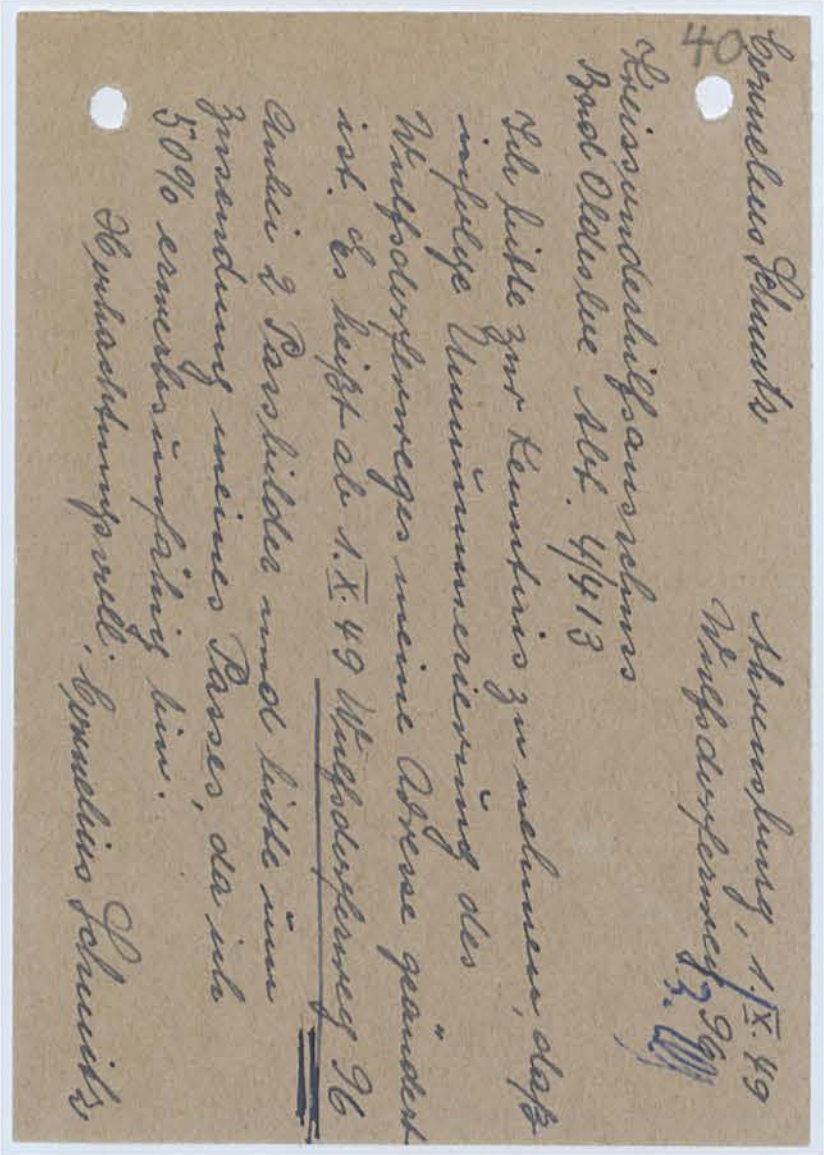 40
Cornelius Schmitz
Ahrensburg, 1. IX. 49
Wulfsdorferweg 96
Kreissonderhilfsausschuss
Bad Oldesloe Abt. 4/413
Ich bitte zur Kenntnis zu nehmen, daß
infolge Umnummerierung des
Wulfsdorferweges meine Adresse geändert
ist. Es heißt ab 1. IX. 49 Wulfsdorferweg 96
Anbei 2 Passbilder und bitte um
Zusendung meines Passes, da ich
50% erwerbsunfähig bin.
Hochachtungsvoll: Cornelius Schmitz